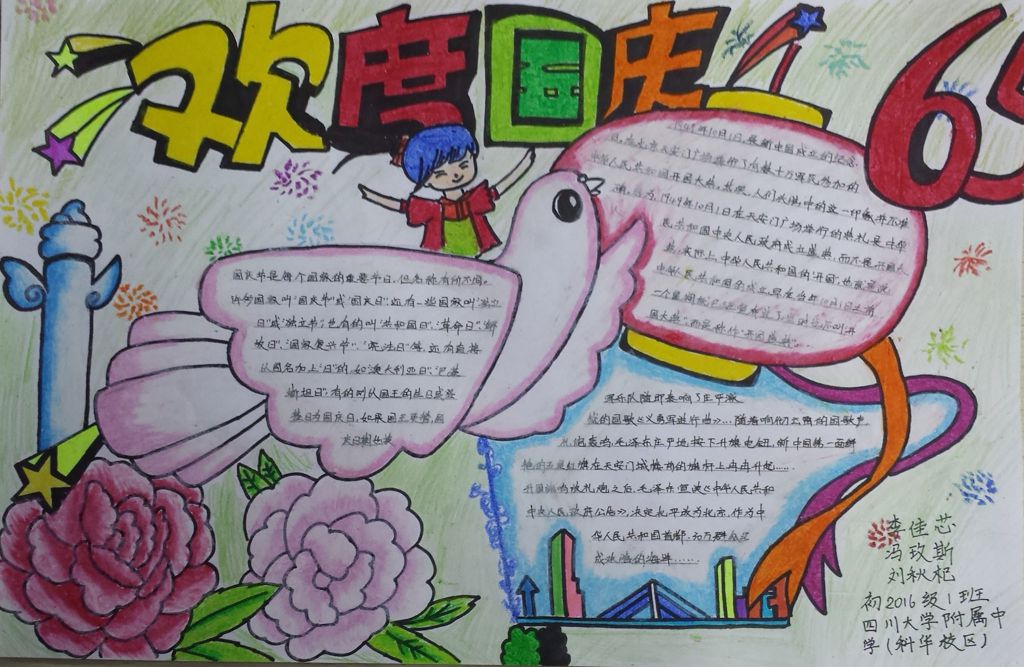 欢度国庆
65
1949年10月1日,是新中国成立的纪念
日,在北京天安门广场举行了有数十万军民参加的
中华人民共和国开国大典,其实,人们头脑中的这一印象并不准
确,因为,1949年10月1日在天安门广场举行的典礼是中华
人民共和国中央人民政府成立盛典,而不是开国大
典,实际上,中华人民共和国的"开国",也就是说
中华人民共和国的成立,早在当年10月1日之前
一个星期就已经宣布过了,当时也不叫"开
国大典",而是称作"开国盛典"
国庆节是每个国家的重要节日,但名称有所不同。
许多国家叫"国庆节"或"国庆日",还有一些国家叫"独立
日"或"独立节",也有的叫"共和国日"、"革命日"、"解
放日"、"国家复兴节"、"宪法日"等,还有直接
以国名加上"日"的,如"澳大利亚日"、"巴基
斯坦日",有的则以国王的生日或登
基日为国庆日,如遇国王更替,国
庆日期也
军乐队随即奏响了庄严激
的国歌《义勇军进行曲》…随着响彻云霄的国歌声
毛泽东庄严地按下升旗电钮,新中国第一面鲜
艳的五星红旗在天安门城楼前的旗杆上冉冉升起……
之后,毛泽东宣读《中华人民共和
中央人民政府公告》,决定北平改为北京,作为中
华人民共和国首都,30万群众汇
成欢腾的海洋……
李佳芯
冯玫斯
刘秋杞
初2016级1班
四川大学附属中
学(科华校区)